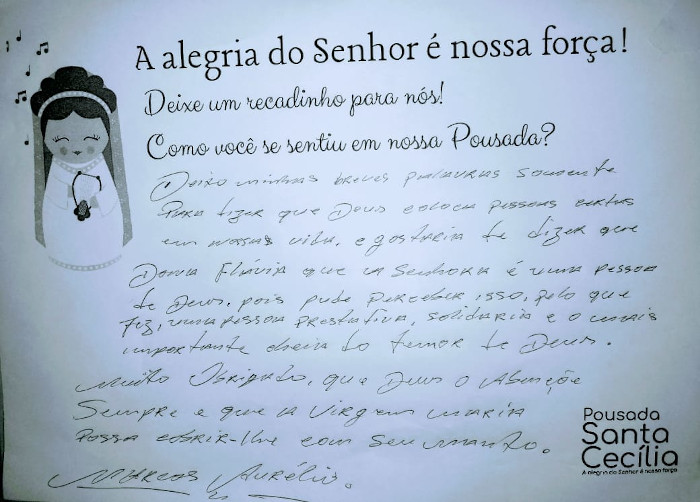 A alegria do Senhor é nossa força!
Deixe um recadinho para nós!
Como você se sentiu em nossa Pousada?
Deixo minhas breves palavras somente
Para dizer que Deus coloca pessoas certas
em nossas vida. e gostaria de dizer que
Donna Flávia que a Senhora é uma pessoa
de Deus. pois pude perceber isso, pelo que
fiz, uma pessoa prestativa, solidaria e o mais
importante cheia do temor de Deus.
Muito Obrigado, que Deus o Abençõe
Sempre e que a Virgem maria
possa cobrir-lhe com seu manto.
Marcos Aurélio.
Pousada
Santa
Cecília
A alegria do Senhor é nossa força